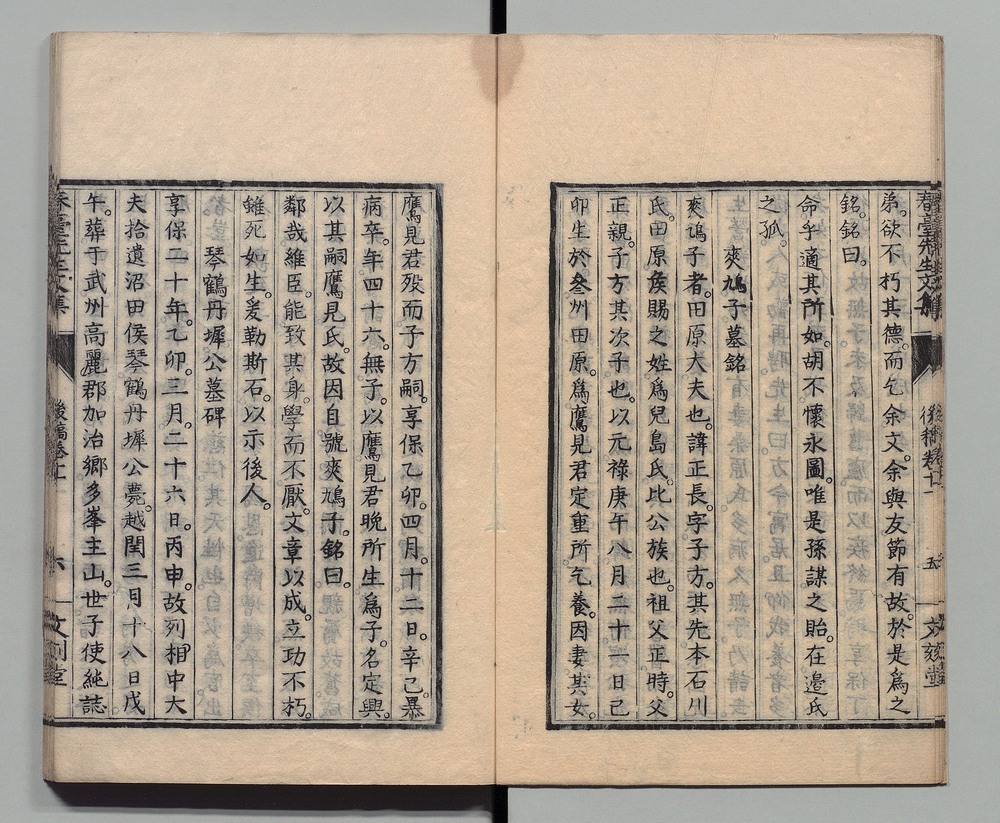 弟。欲不朽其德。而乞余文。余與友節有故。於是爲之
銘。銘曰。
命乎適其所如。胡不懷永圖。唯是孫謀之貽。在邊氏
之孤。
爽鳩子墓銘
爽鳩子者。田原大夫也。諱正長。字子方。其先本石川
氏。田原矦賜之姓爲兒島氏。比公族也。祖父正時。父
正親。子方其次子也。以元祿庚午八月二十一日己
卯生於叄州田原。爲鷹見君定重所乞養。因妻其女。
鷹見君歿而子方嗣。享保乙卯。四月。十二日。辛己暴
病卒。年四十六。無子。以鷹見君晚所生爲子。名定興。
以其嗣鷹見氏。故因自號爽鳩子。銘曰。
鄰哉維臣。能致其身。學而不厭。文章以成。立功不朽。
雖死如生。爰勒斯石。以示後人。
琴鶴丹墀公墓碑
享保二十年。乙卯。三月。二十六日。丙申。故列相中大
夫拾遺沼田侯琴鶴丹墀公薨。越閏三月十八日戊
午。葬于武州高麗郡加治鄉多峯主山。世子使純誌
後稿卷十一
六
文刻堂